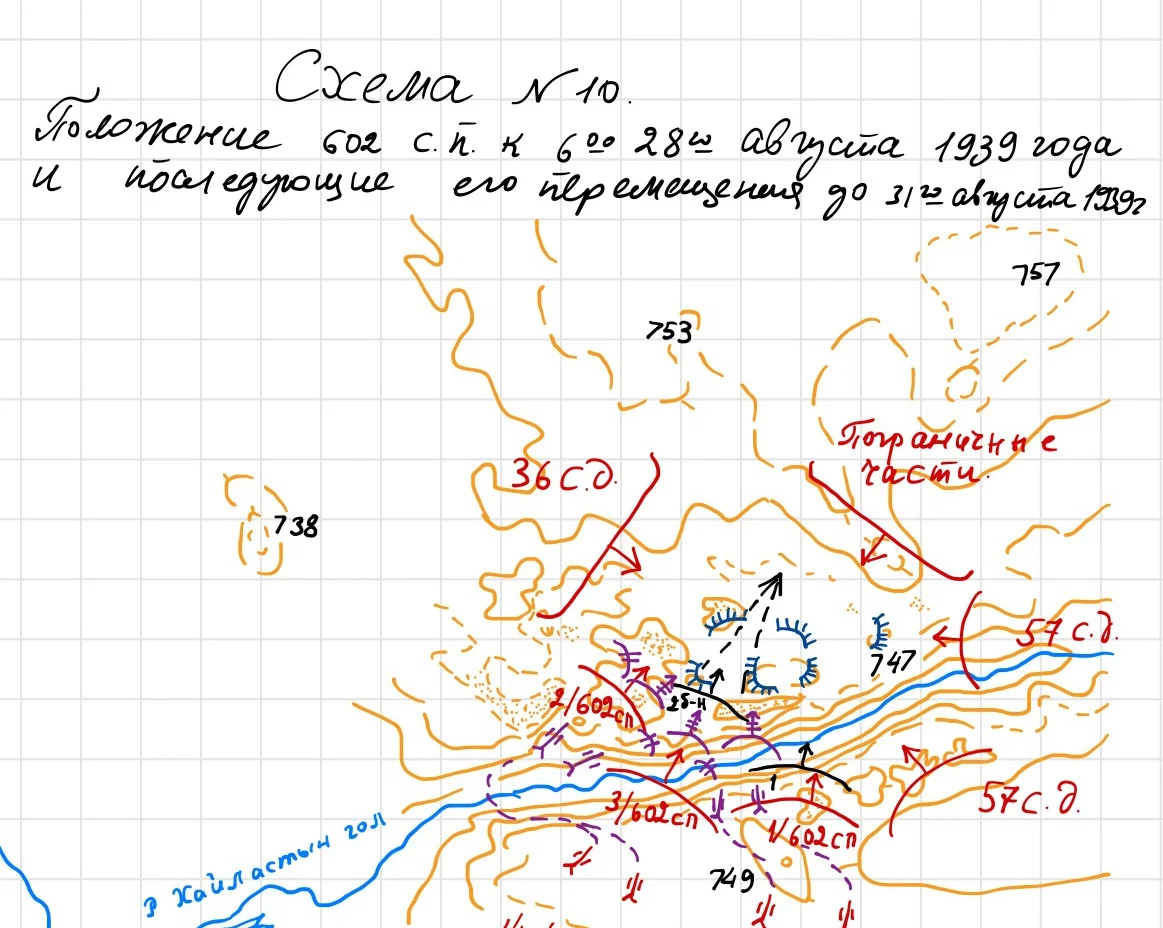 Схема N 10.
Положение 602 с.п. к 6⁰⁰ 28го августа 1939 года
и последующие его перемещения до 31го августа 1939г
757
753
Пограничные
части.
36 с.д.
738
57 с.д.
747
2/602сп
2б-н
1
3/602сп
1/602сп
57 с.д.
749
р Хайластын гол